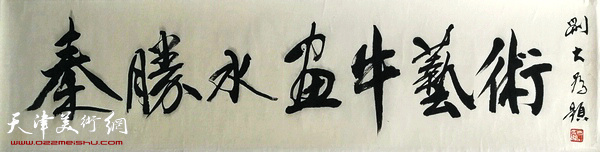 秦勝水画牛藝術
劉大為題
天津美術網
www.022meishu.com